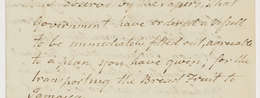 by the papers, that
Government have ordered a Vessel
to be immediately fitted out, agreeable
to a plan you have given, for the
transporting the Bread Fruit to
Jamaica